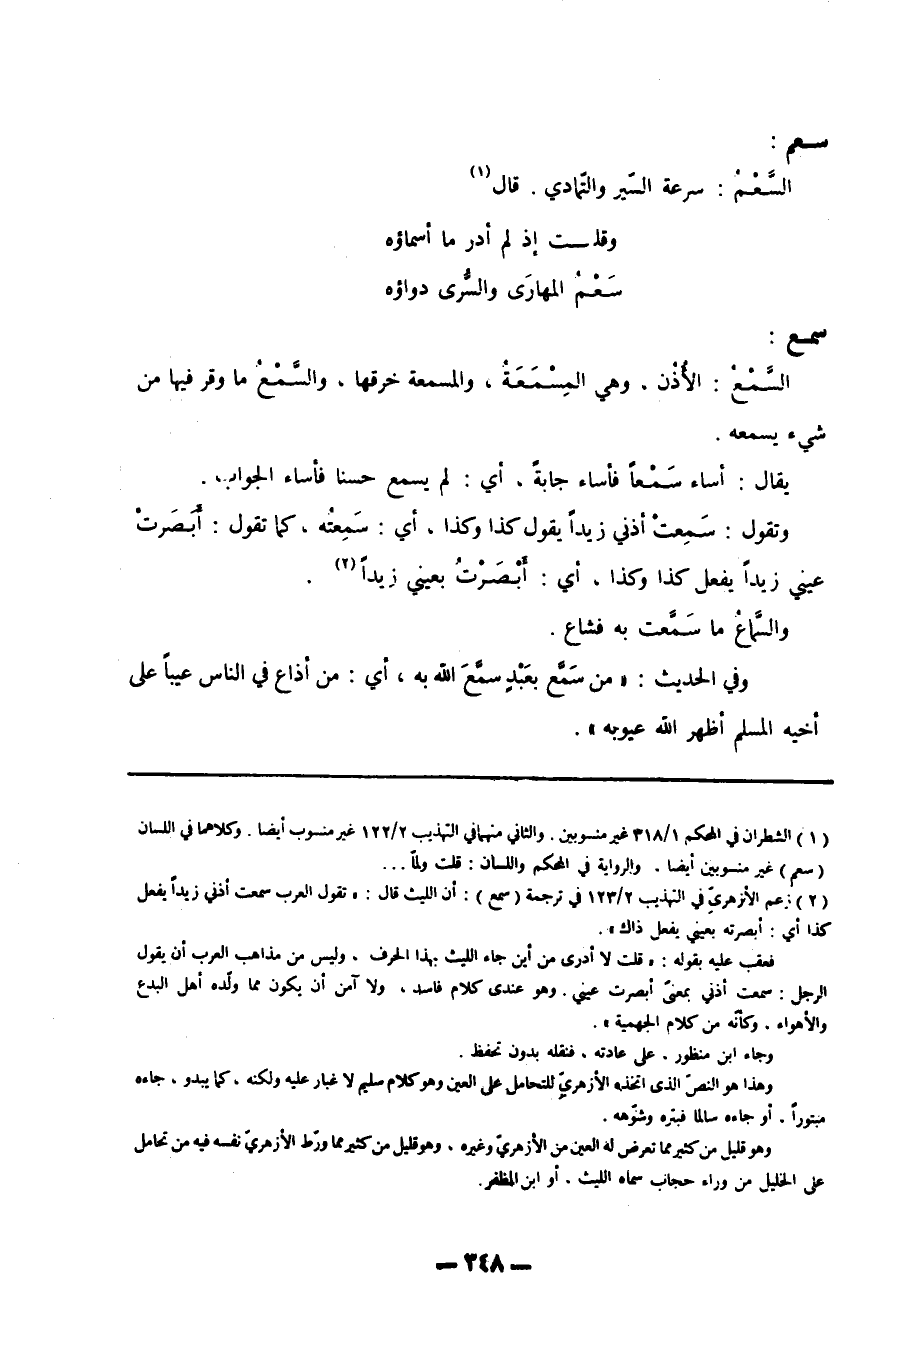 سعم :
السَّعْمُ : سرعة السّير والتّمادي . قال(١)
وقلت إذ لم أدر ما أسماؤه
سَعْمُ المهارَى والسُّرى دواؤه
سمع :
السَّمْعُ : الأُذُن . وهي المِسْمَعَةُ ، والمسمعة خرقها ، والسَّمْعُ ما وقر فيها من
شيء يسمعه .
يقال : أساء سَمْعاً فأساء جابةً ، أي : لم يسمع حسنا فأساء الجواب .
وتقول : سَمِعتْ أذني زيداً يقول كذا وكذا ، أي : سَمِعتُه ، كما تقول : أَبصَرتْ
عيني زيداً يفعل كذا وكذا ، أي : أَبْصَرْتُ بعيني زيداً(٢) .
والسَّماعُ ما سَمَّعت به فشاع .
وفي الحديث : « من سَمَّع بعَبْدٍ سمَّعَ الله به ، أي : من أذاع في الناس عيباً على
أخيه المسلم أظهر الله عيوبه » .
( ١ ) الشطران في المحكم ٣١٨/١ غير منسوبين . والثاني منهما في التهذيب ١٢٢/٢ غير منسوب أيضا . وكلاهما في اللسان
( سعم ) غير منسوبين أيضا . والرواية في المحكم واللسان : قلت ولمّا ...
( ٢ ) زعم الأزهريّ في التهذيب ١٢٣/٢ في ترجمة ( سمع ) : أن الليث قال : « تقول العرب سمعت أذني زيداً يفعل
كذا أي : أبصرته بعيني يفعل ذاك » .
فعقب عليه بقوله : « قلت لا أدرى من أين جاء الليث بهذا الحرف ، وليس من مذاهب العرب أن يقول
الرجل : سمعت أذني بمعنىّ أبصرت عيني . وهو عندى كلام فاسد ، ولا آمن أن يكون مما ولّده أهل البدع
والأهواء . وكأنّه من كلام الجهمية » .
وجاء ابن منظور . على عادته ، فنقله بدون تحفظ .
وهذا هو النصّ الذى اتخذه الأزهريّ للتحامل على العين وهو كلام سليم لا غبار عليه ولكنه ، كما يبدو ، جاءه
مبتوراً . أو جاءه سالما فبتره وشوّهه .
وهو قليل من كثير مما تعرض له العين من الأزهريّ وغيره ، وهو قليل من كثير مما ورّط الأزهريّ نفسه فيه من تحامل
على الخليل من وراء حجاب سماه الليث . أو ابن المظفر .
— ٣٤٨ —